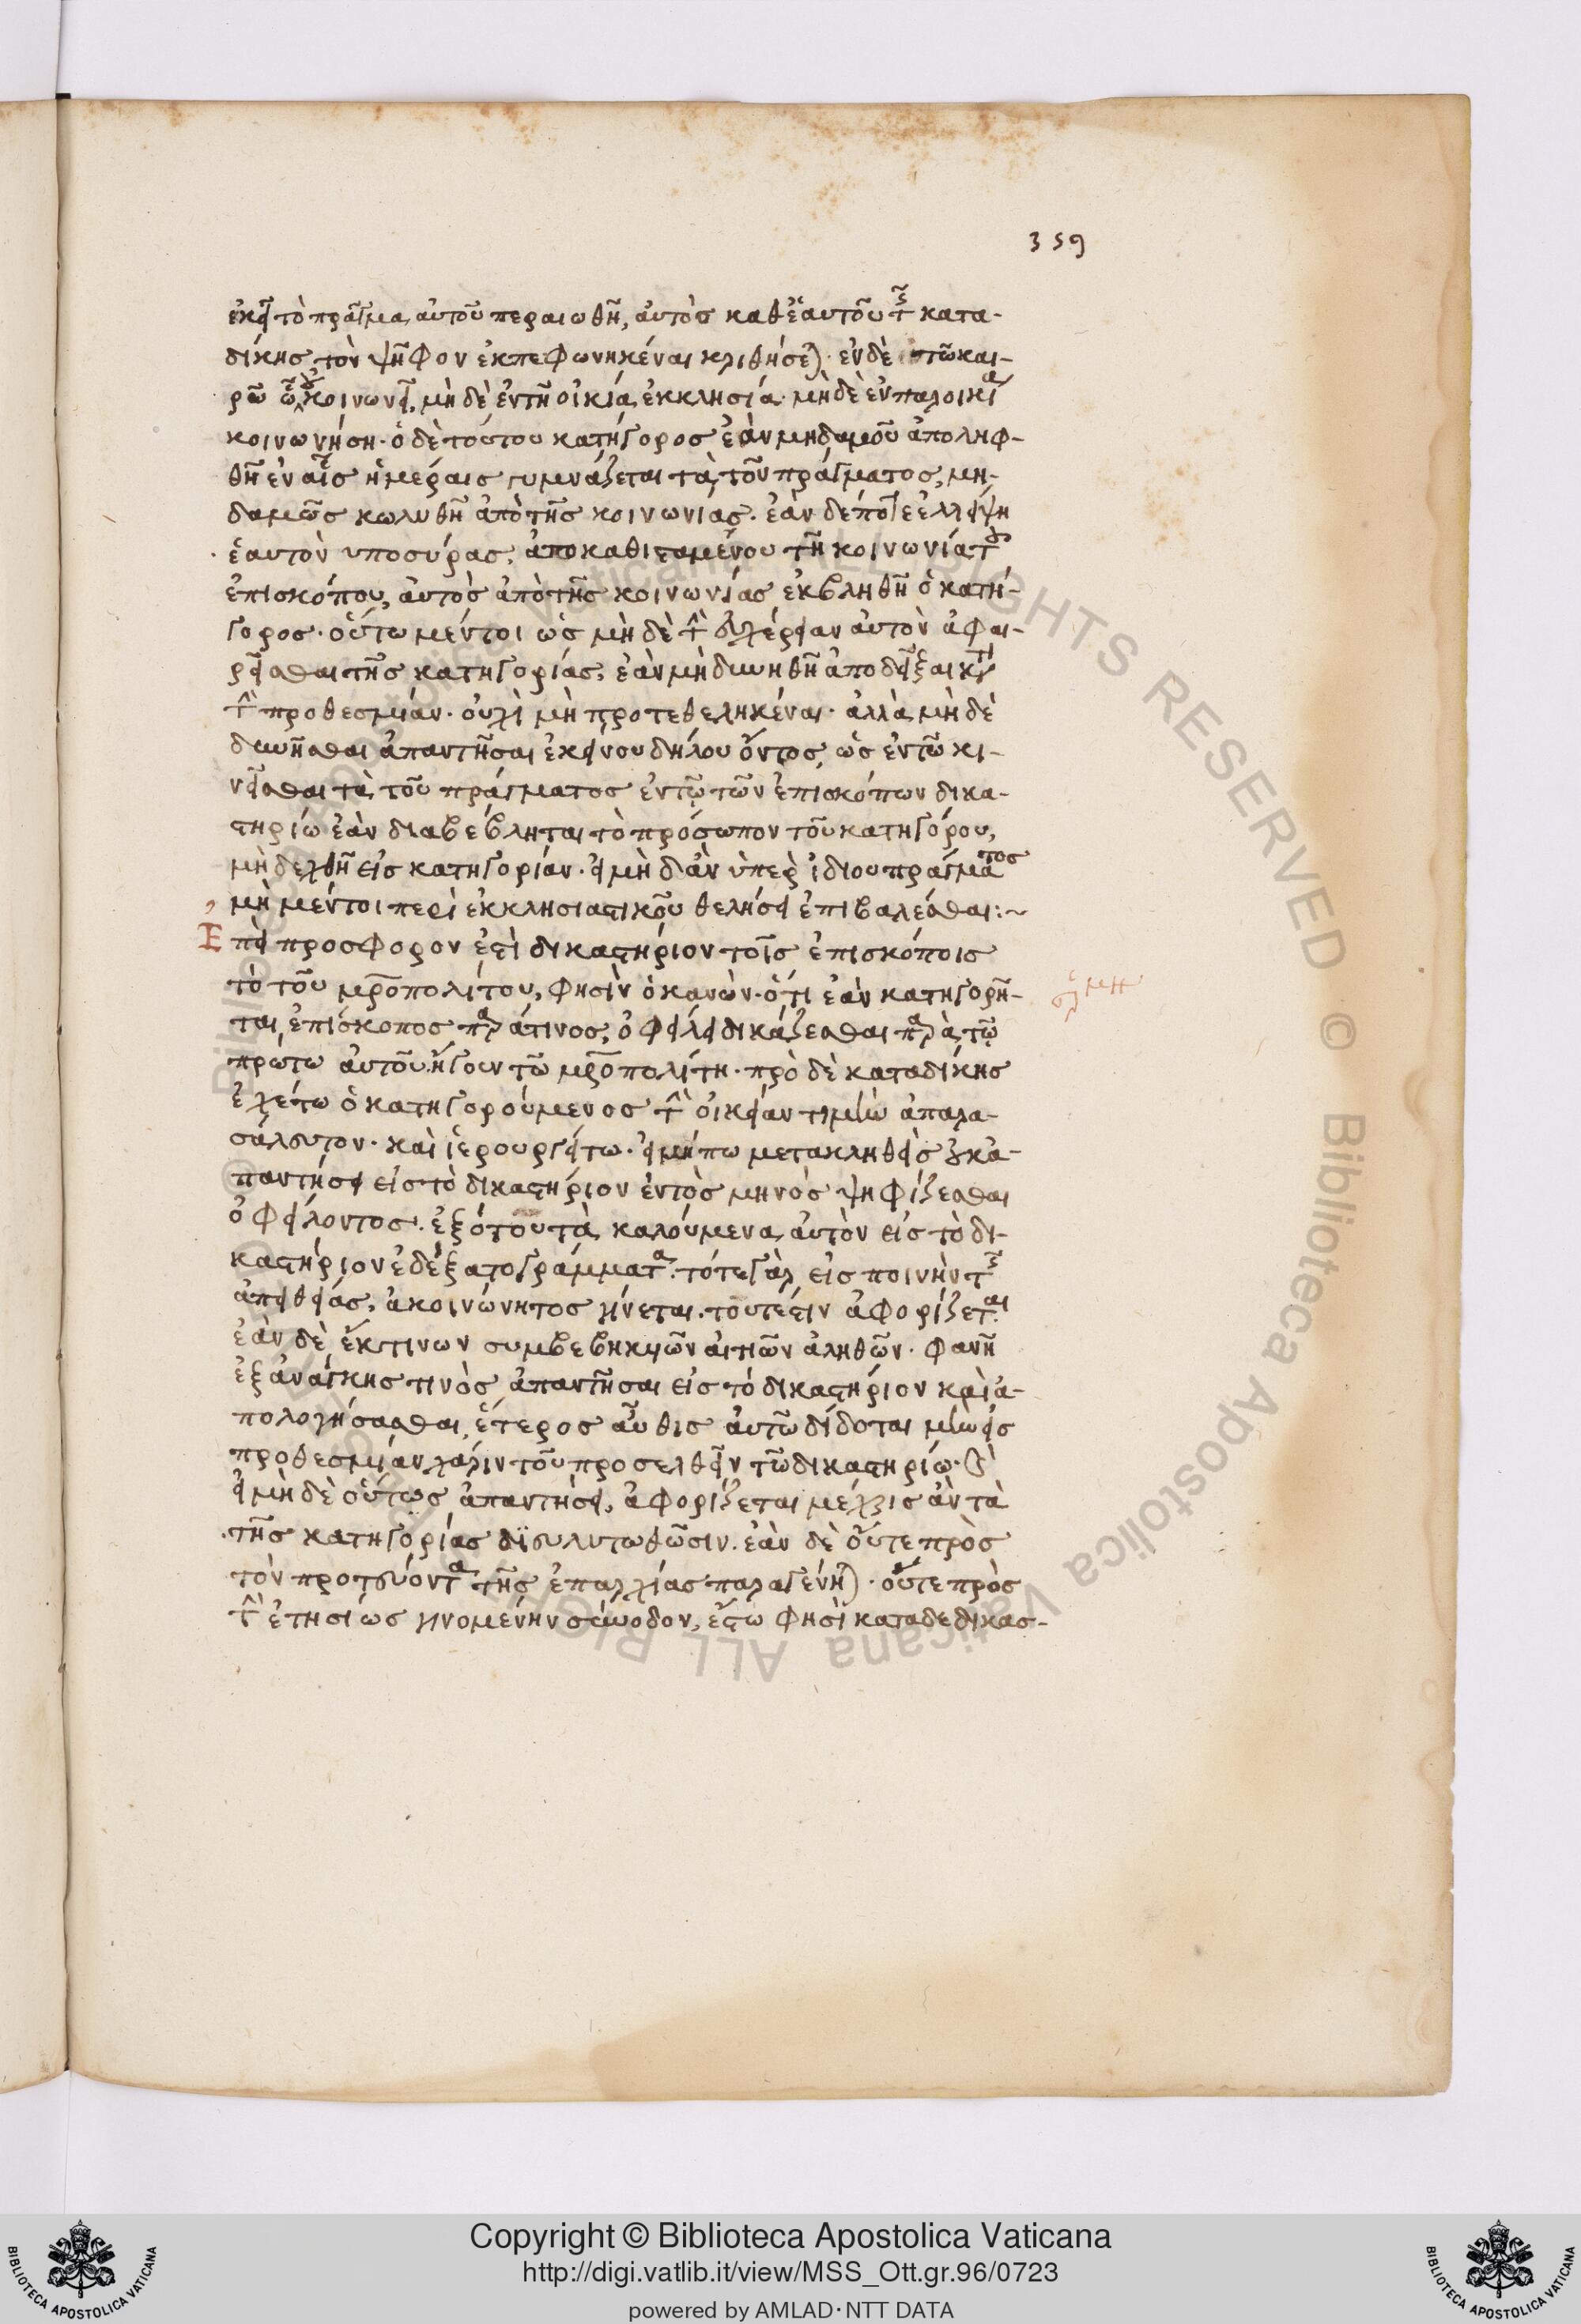 359
ἐκεῖ τὸ πρᾶγμα αὐτοῦ περαιωθῆ, αὐτὸς καθ' ἑαυτοῦ τῆς κατα-
δίκης τὸν ψῆφον ἐκπεφωνηκέναι κριθήσεται. ἐν δὲ τῶ και-
ρῶ ὧ οὐ κοινωνεῖ, μὴ δὲ ἐν τῆ οἰκία ἐκκλησία. μὴ δὲ ἐν παροικία
κοινωνήση. ὁ δὲ τούτου κατήγορος ἐὰν μηδαμοῦ ἀπολειφ-
θῆ ἐν αἷς ἡμέραις γυμνάζεται τὰ τοῦ πράγματος, μη-
δαμῶς κωλυθῆ ἀπὸ τῆς κοινωνίας. ἐὰν δέ ποτε ἐλλείψη
ἑαυτὸν υποσύρας, ἀποκαθισταμένου τῆ κοινωνία τοῦ
ἐπισκόπου, αὐτὸς ἀπὸ τῆς κοινωνίας ἐκβληθῆ ὁ κατή-
γορος. οὕτω μέντοι ὡς μὴ δὲ τὴν εὐχέρειαν αὐτὸν ἀφαι-
ρεῖσθαι τῆς κατηγορίας, ἐὰν μὴ δυνηθῆ ἀποδεῖξαι
τὴν προθεσμίαν. οὐχὶ μὴ προτεθεληκέναι. ἀλλὰ μὴ δὲ
δυνῆσθαι ἀπαντῆσαι ἐκείνου δήλου ὄντος, ὡς ἐν τῶ κι-
νεῖσθαι τὰ τοῦ πράγματος ἐν τῶ τῶν ἐπισκόπων δικα-
στηρίω ἐὰν διαβέβληται τὸ πρόσωπον τοῦ κατηγόρου,
μὴ δεχθῆ εἰς κατηγορίαν. εἰ μὴ δ' ἂν ὑπὲρ ἰδίου πράγματος
μὴ μέντοι περὶ ἐκκλησιαστικοῦ θελήσει ἐπιβαλέσθαι:~
Ἐπεὶ προσφορον ἐστὶ δικαστήριον τοῖς ἐπισκόποις
τὸ τοῦ μροπολίτου, φησὶν ὁ κανὼν. ὅτι ἐὰν κατηγορῆ-
ται ἐπίσκοπος παρά τινος, ὀφείλει δικάζεσθαι παρὰ τῶ
πρώτω αὐτοῦ ἤγουν τῶ μροπολίτη. πρὸ δὲ καταδίκης
ἐχέτω ὁ κατηγορούμενος τὴν οἰκείαν τιμὴν ἀπαρα-
σάλευτον. καὶ ἱερουργείτω. εἰ μήπω μετακληθεὶς οὐκ ἀ-
παντήσει εἰς τὸ δικαστήριον ἐντὸς μηνὸς ψηφίζεσθαι
ὀφείλοντος. ἐξότου τὰ καλούμενα αὐτὸν εἰς τὸ δι-
καστήριον ἐδέξατο γράμματα. τότε γὰρ εἰς ποινὴν τῆς
ἀπειθείας, ἀκοινώνητος γίνεται. τουτέστιν ἀφορίζεται
ἐὰν δὲ ἔκ τινων συμβεβηκυῶν αἰτιῶν ἀληθῶν. φανῆ
ἐξ ἀνάγκης τινὸς ἀπαντῆσαι εἰς τὸ δικαστήριον καὶ ἀ-
πολογήσασθαι, ἕτερος αὖθις αὐτῶ δίδοται μὴν εἰς
προθεσμίαν χάριν τοῦ προσελθεῖν τῶ δικαστηρίω. καὶ
εἰ μὴ δὲ οὕτως ἀπαντήσει, ἀφορίζεται μέχρις ἂν τὰ
τῆς κατηγορίας διευλυτωθῶσιν. ἐὰν δὲ οὔτε πρὸς
τὸν πρωτεύοντα τῆς ἐπαρχίας παραγένηται. οὔτε πρὸς
τὴν ἐτησίως γινομένην σύνοδον, ἔστω φησὶ καταδεδικασ-